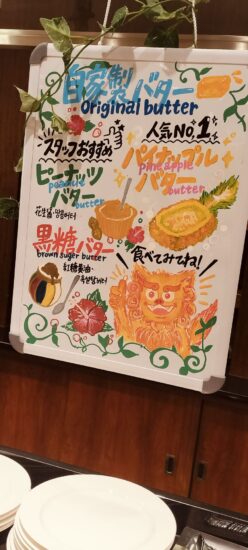 自家製バター
original butter
スタッフおすすめ
ピーナッツ
peanut
バター
butter
花生酱・땅콩버터
人気No.1
パイナップル
pineapple
バター
butter
黒糖バター
brown suger butter
紅糖黄油・
흑설탕버터
食べてみてね!